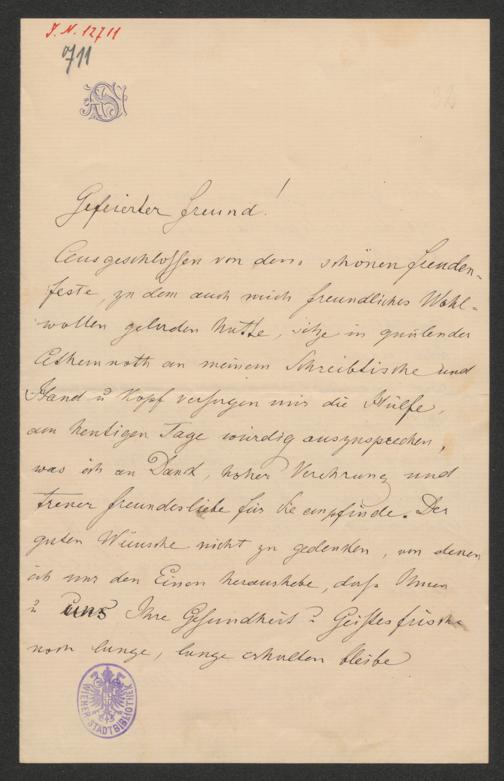 J. N. 12711
711
Gefeierter Freund!
Ausgeschlossen von dem schönen Freuden-
feste, zu dem auch mich freundliches Wohl-
wollen geladen hatte, sitze in quälender
Athemnoth an meinem Schreibtische und
Hand u Kopf versagen mir die Hülfe,
am heutigen Tage würdig auszusprechen,
was ich an Dank, hoher Verehrung und
treuer Freundesliebe für Sie empfinde. Der
guten Wünsche nicht zu gedenken, von denen
ich nur den Einen heraushebe, dass Ihnen
u uns Ihre Gesundheit u Geistesfrische
noch lange, lange erhalten bleibe
WIENER STADTBIBLIOTHEK